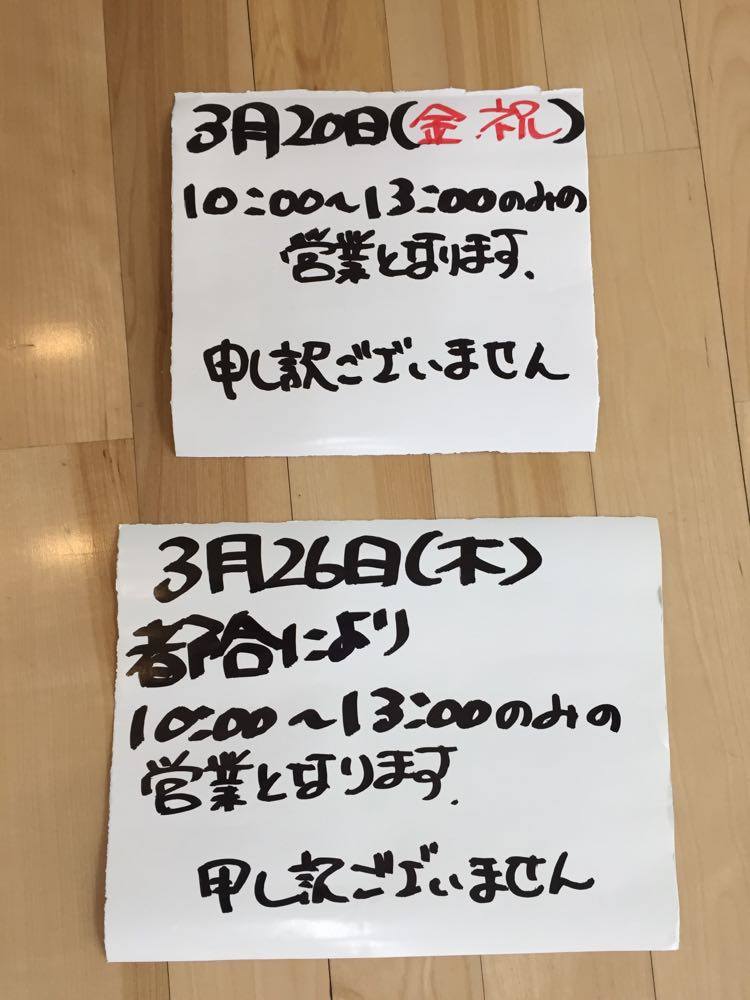 3月20日(金.祝)
10:00~13:00のみの
営業となります.
申し訳ございません
3月26日(木)
都合により
10:00~13:00のみの
営業となります.
申し訳ございません